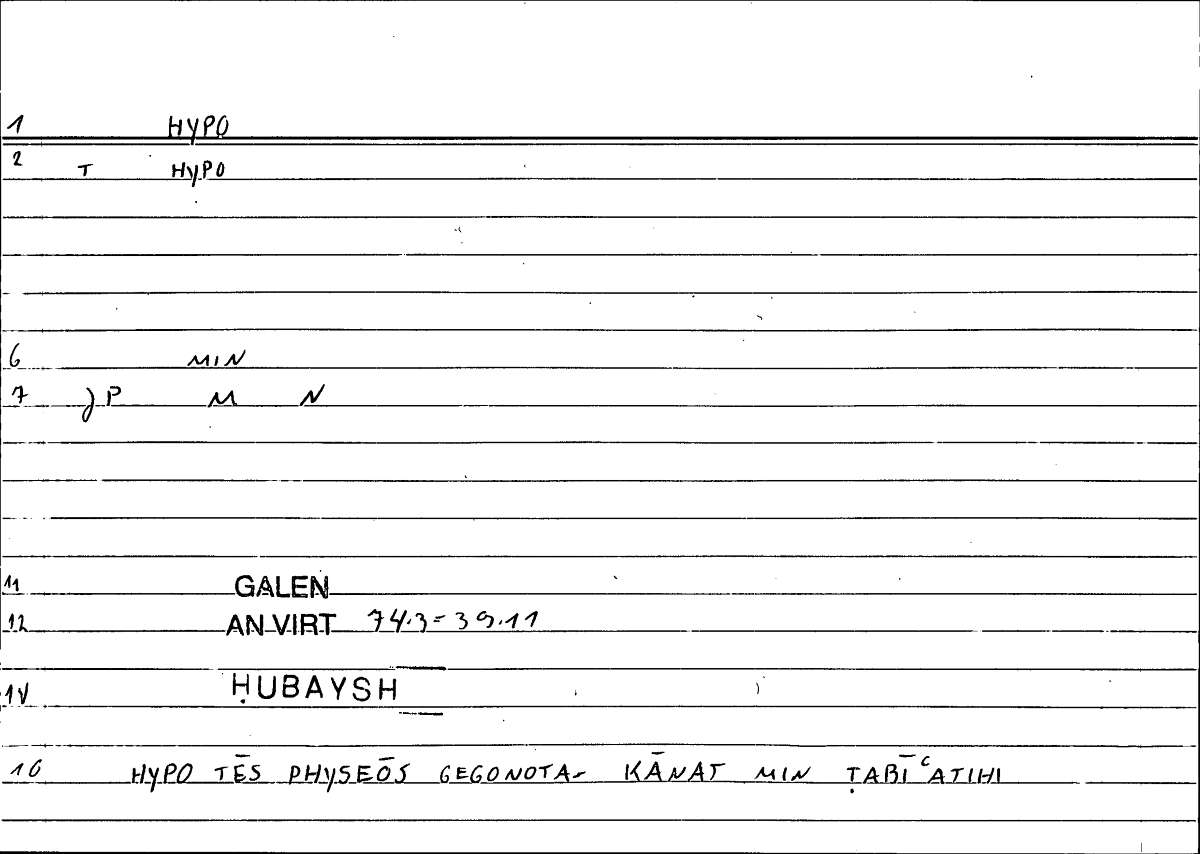 1 HYPO
2 T HYPO
6 MIN
7 JP M N
11 GALEN
12 AN VIRT 74.3=39.11
14 ḤUBAYSH
16 HYPO TĒS PHYSEŌS GEGONOTA- KĀNAT MIN ṬABĪʿATIHI